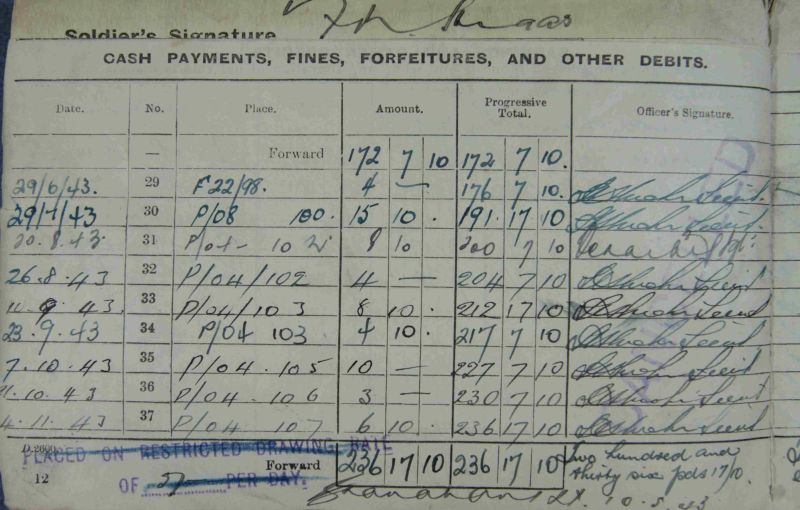 Soldier's Signature
CASH PAYMENTS, FINES, FORFEITURES, AND OTHER DEBITS.
Date. No. Place. Amount. Progressive Total. Officer's Signature.
— Forward 172 7 10 172 7 10.
29/6/43. 29 F22/98. 4 — 176 7 10.
29/7/43 30 P/08 100. 15 10 . 191 17 10
20.8.43 31 P/04- 102 8 10 200 7 10
26.8.43 32 P/04/102 4 — 204 7 10
11.9.43. 33 P/04/103 8 10. 212 17 10
23.9.43 34 P/04 103 4 10. 217 7 10
7.10.43 35 P/04.105 10 — 227 7 10
.10.43 36 P/04.106 3 — 230 7 10
4.11.43 37 P/04 107 6 10. 236 17 10
D.2660
PLACED ON RESTRICTED DRAWING RATE
Forward 236 17 10 236 17 10 two hundred and
thirty six pds 17/10.
12 OF PER DAY.